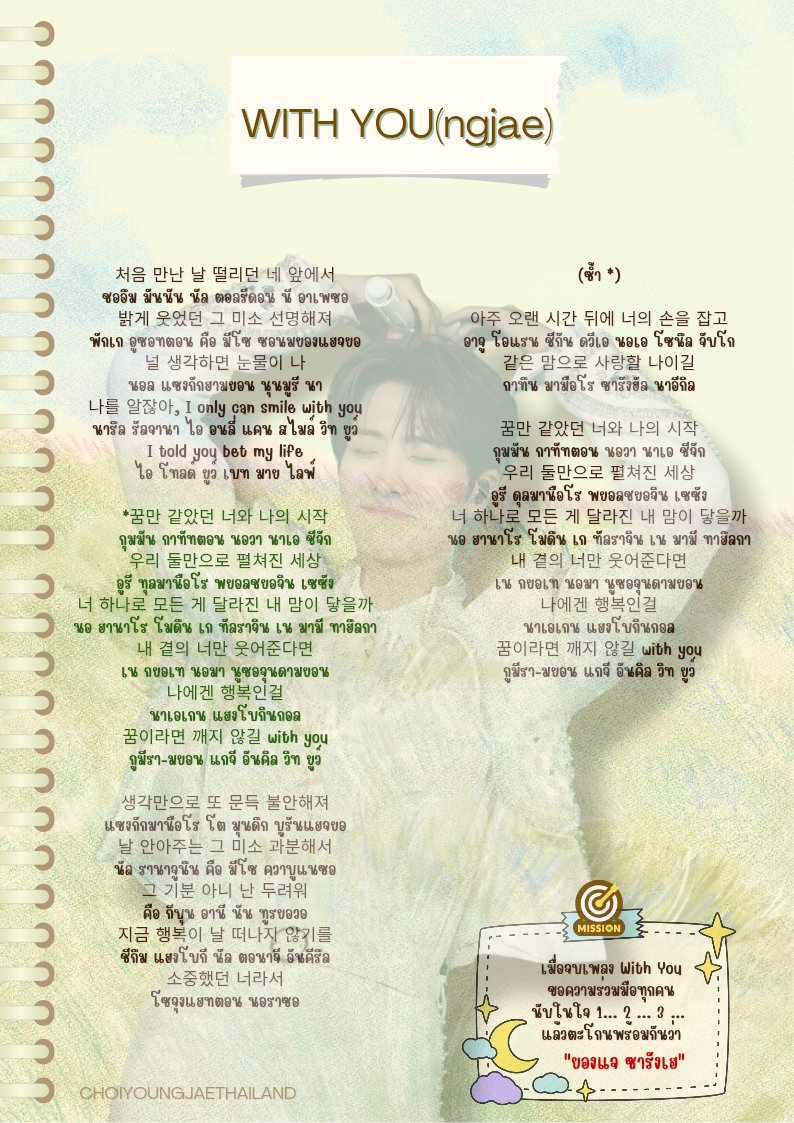 WITH YOU(ngjae)
처음 만난 날 떨리던 네 앞에서
ชออึม มันนัน นัล ตอลรีดอน นี อาเพซอ
밝게 웃었던 그 미소 선명해져
พักเก อูซอทตอน คือ มีโซ ซอนมยองแฮจยอ
널 생각하면 눈물이 나
นอล แซงกักฮามยอน นุนมูรี นา
나를 알잖아, I only can smile with you
นารึล รัลจานา ไอ อนลี่ แคน สไมล์ วิท ยูว์
I told you bet my life
ไอ โทลด์ ยูว์ เบท มาย ไลฟ์
*꿈만 같았던 너와 나의 시작
กุมมัน กาทัทตอน นอวา นาเอ ชีจัก
우리 둘만으로 펼쳐진 세상
อูรี ทุลมานือโร พยอลชยอจิน เซซัง
너 하나로 모든 게 달라진 내 맘이 닿을까
นอ ฮานาโร โมดึน เก ทัลราจิน เน มามี ทาฮึลกา
내 곁의 너만 웃어준다면
เน กยอเท นอมา นูซอจุนดามยอน
나에겐 행복인걸
นาเอเกน แฮงโบกินกอล
꿈이라면 깨지 않길 with you
กูมีรา-มยอน แกจี อันคิล วิท ยูว์
생각만으로 또 문득 불안해져
แซงกักมานือโร โต มุนดึก บูรันแฮจยอ
날 안아주는 그 미소 과분해서
นัล รานาจูนึน คือ มีโซ ควาบูแนซอ
그 기분 아니 난 두려워
คือ กีบุน อานี นัน ทูรยอวอ
지금 행복이 날 떠나지 않기를
ชีกึม แฮงโบกี นัล ตอนาจี อันคีรึล
소중했던 너라서
โซจุงแฮทตอน นอราซอ
(ซ้ำ *)
아주 오랜 시간 뒤에 너의 손을 잡고
อาจู โอแรน ชีกัน ดวีเอ นอเอ โซนึล จับโก
같은 맘으로 사랑할 나이길
กาทึน มามือโร ซารังฮัล นาอีกิล
꿈만 같았던 너와 나의 시작
กุมมัน กาทัทตอน นอวา นาเอ ชีจัก
우리 둘만으로 펼쳐진 세상
อูรี ดุลมานือโร พยอลชยอจิน เซซัง
너 하나로 모든 게 달라진 내 맘이 닿을까
นอ ฮานาโร โมดึน เก ทัลราจิน เน มามี ทาฮึลกา
내 곁의 너만 웃어준다면
เน กยอเท นอมา นูซอจุนดามยอน
나에겐 행복인걸
นาเอเกน แฮงโบกินกอล
꿈이라면 깨지 않길 with you
กูมีรา-มยอน แกจี อันคิล วิท ยูว์
MISSION
เมื่อจบเพลง With You
ขอความร่วมมือทุกคน
นับในใจ 1... 2 ... 3 ...
แล้วตะโกนพร้อมกันว่า
"ยองแจ ซารังเฮ"
CHOIYOUNGJAETHAILAND